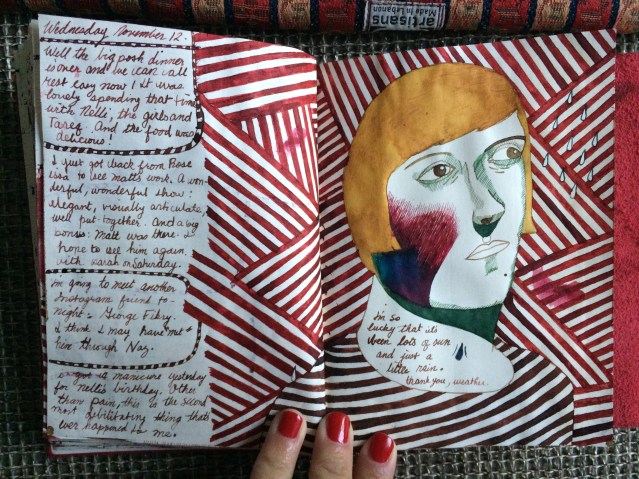 artisans
Made in Lebanon
Wednesday November 12.
Well the big posh dinner
is over and we can all
rest easy now! It was
lovely spending that time
with Nelli, the girls and
Tareq. And the food was
delicious!
I just got back from Rose
Issa to see Matt's work. A won-
derful, wonderful show:
elegant, visually articulate,
well put together. And a big
bonus: Matt was there. I
hope to see him again
with Sarah on Saturday.
I'm going to meet another
Instagram friend to-
night: George Fikry.
I think I may have met
him through Naz.
manicure yesterday
for Nelli's birthday. Other
than pain, this is the second
most debilitating thing that's
ever happened to me.
I'm so
lucky that its
been lots of sun
and just a
little rain.
Thank you, weather.